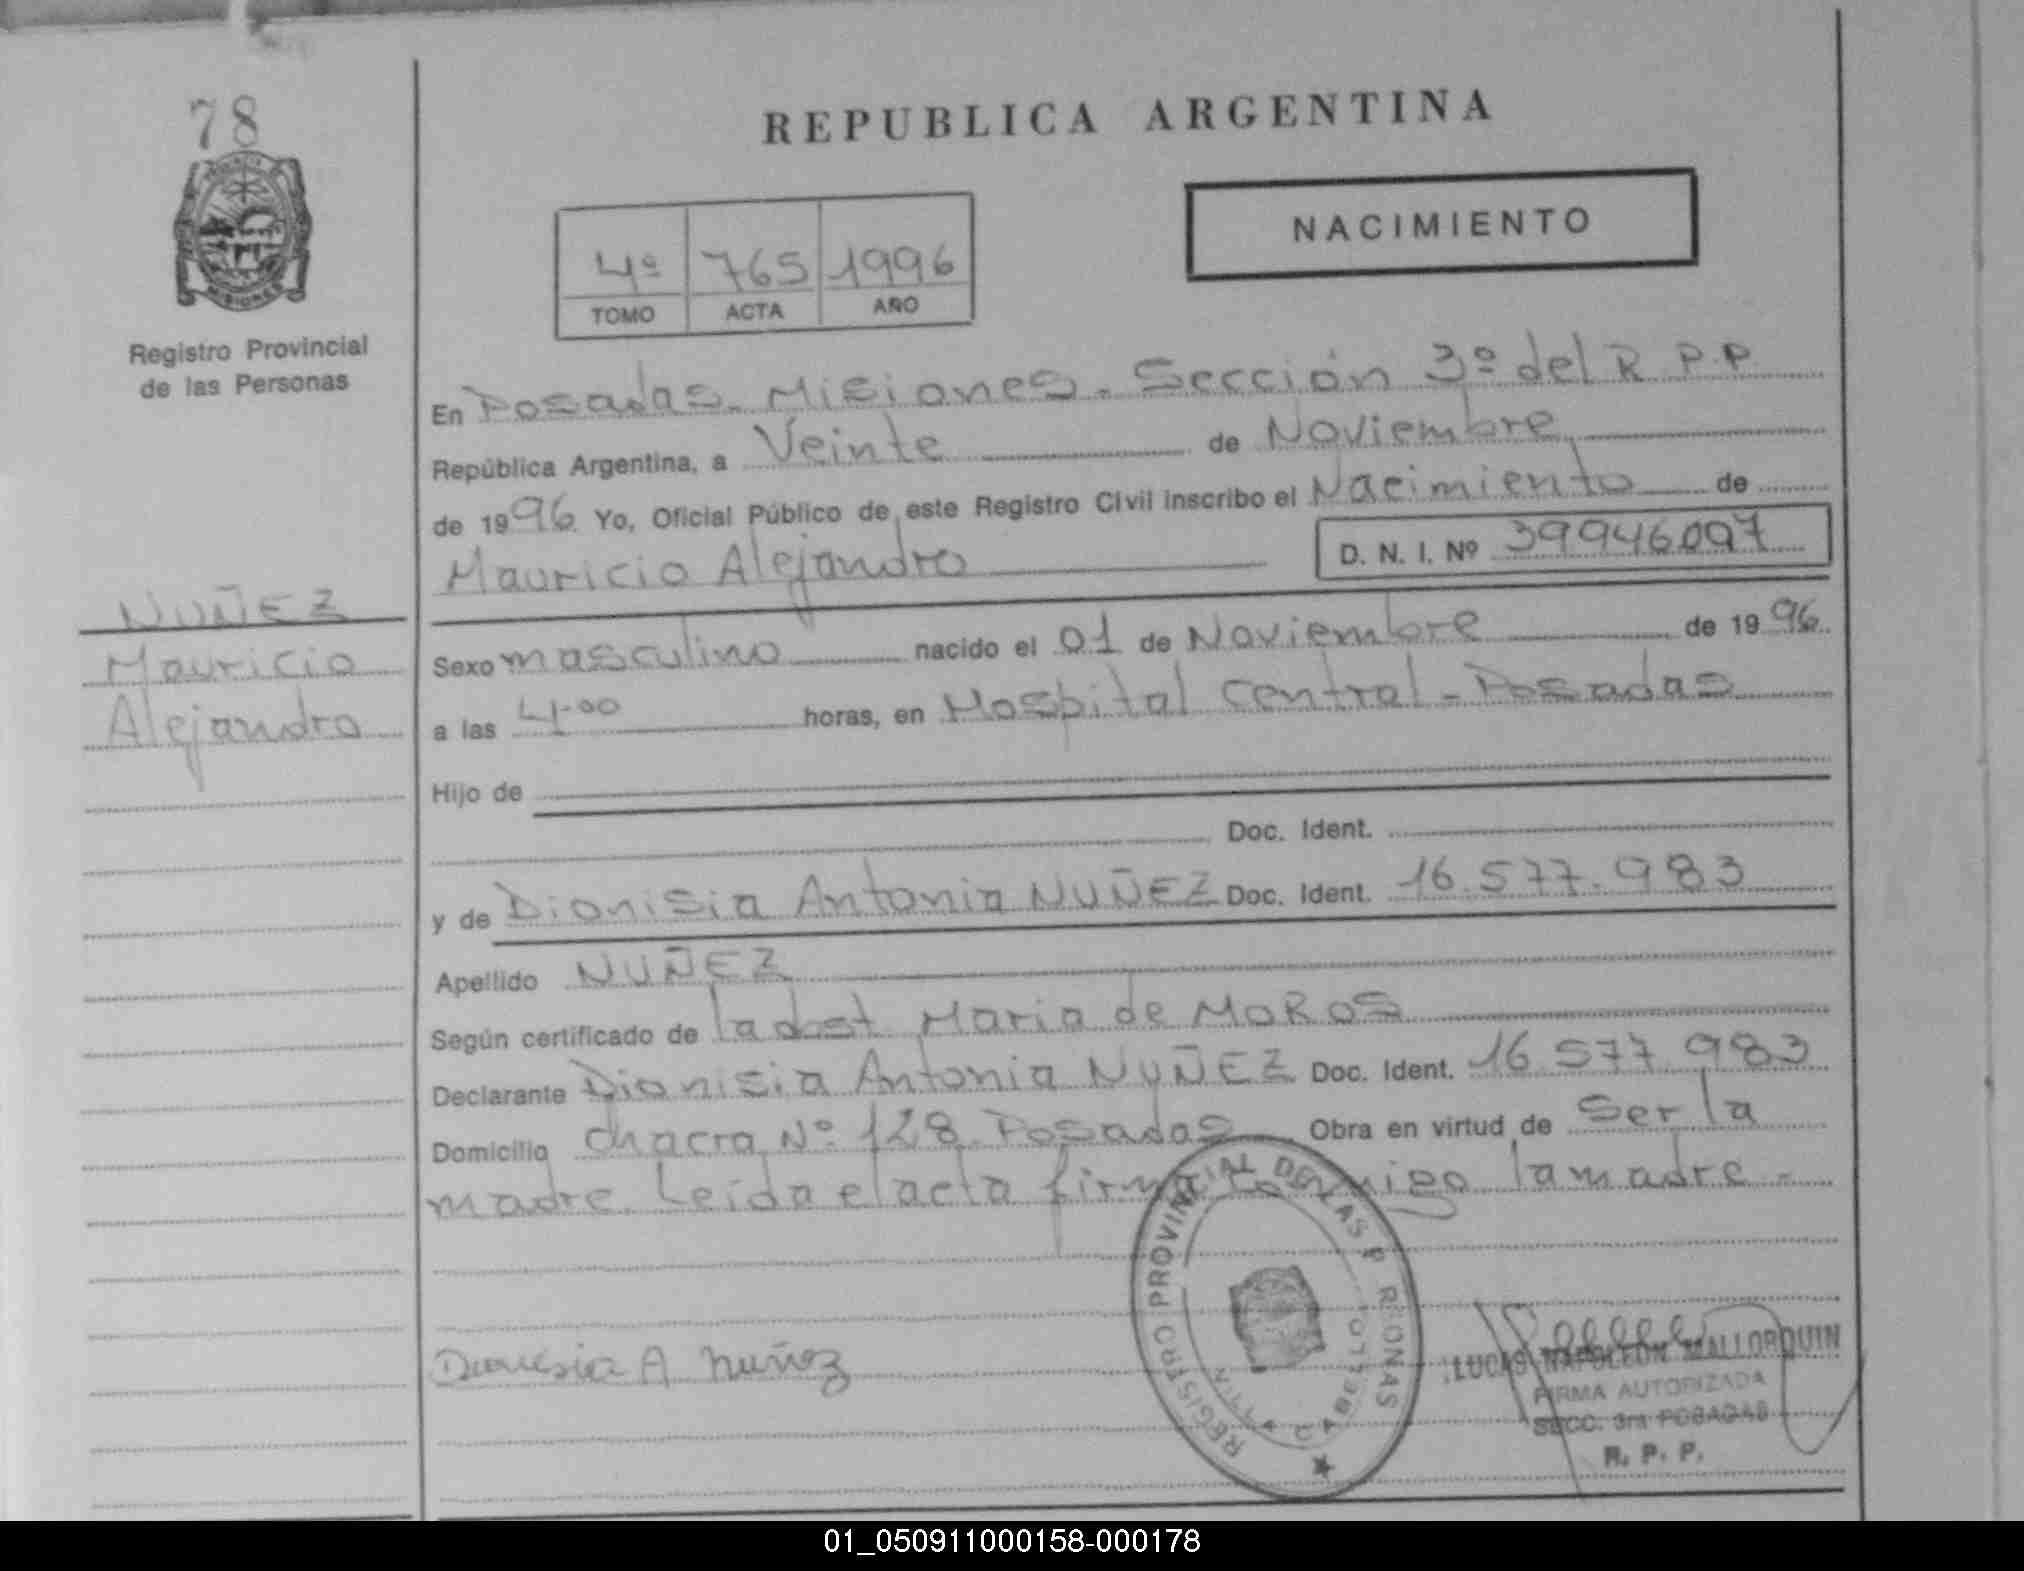 78
MISIONES
Registro Provincial
de las Personas
NUÑEZ
Mauricio
Alejandro
REPUBLICA ARGENTINA
NACIMIENTO
4º 765 1996
TOMO ACTA AÑO
En Posadas. Misiones. Sección 3º del R.P.P
República Argentina, a Veinte de Noviembre
de 1996 Yo, Oficial Público de este Registro Civil inscribo el Nacimiento de
Mauricio Alejandro D. N. I. Nº 39946097
Sexo masculino nacido el 01 de Noviembre de 1996
a las 4,00 horas, en Hospital Central - Posadas
Hijo de
Doc. Ident.
y de Dionisia Antonia NUÑEZ Doc. Ident. 16.577.983
Apellido NUÑEZ
Según certificado de María de MOROS
Declarante Dionisia Antonia NUÑEZ Doc. Ident. 16 577 983
Domicilio chacra Nº 128 Posadas Obra en virtud de ser la
madre. Leída el acta firma conmigo la madre -
Dionisia A Nuñez
REGISTRO PROVINCIAL DE LAS P
LUCAS NAPOLEON MALLORQUIN
FIRMA AUTORIZADA
SECC. 3ra POSADAS
R. P. P.
01_050911000158-000178